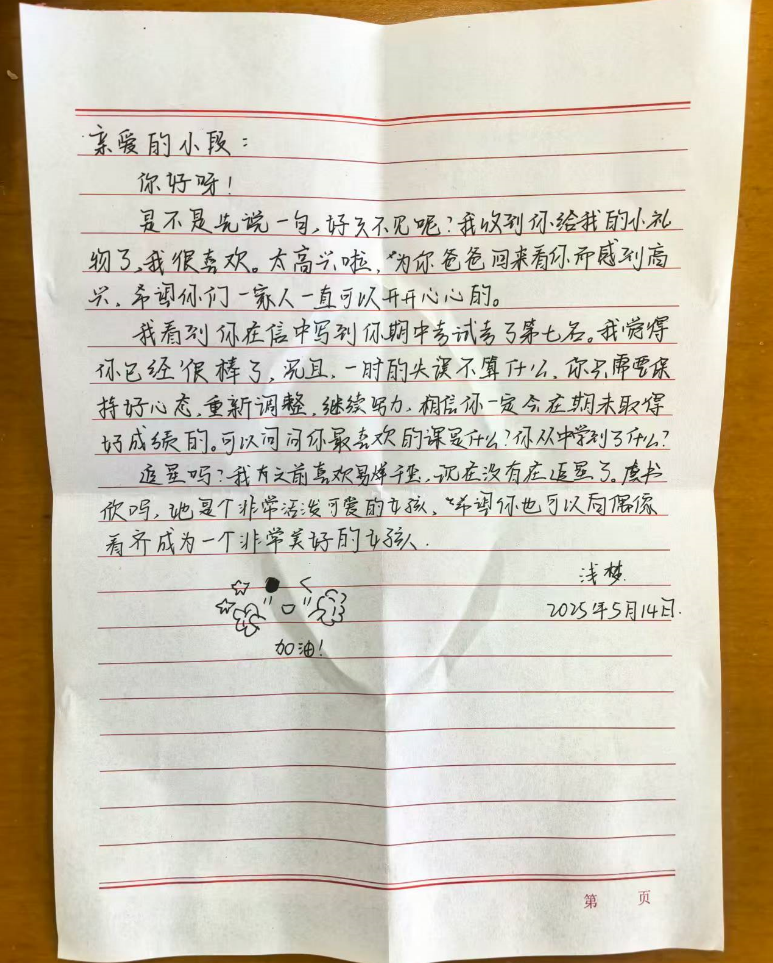 亲爱的小段：
你好呀！
是不是先说一句，好久不见呢？我收到你给我的小礼
物了，我很喜欢。太高兴啦，为你爸爸回来看你而感到高
兴，希望你们一家人一直可以开开心心的。
我看到你在信中写到你期中考试考了第七名。我觉得
你已经很棒了，况且，一时的失误不算什么，你只需要保
持好心态，重新调整，继续努力，相信你一定会在期末取得
好成绩的。可以问问你最喜欢的课是什么？你从中学到了什么？
追星吗？我之前喜欢易烊千玺，现在没有在追星了。虞书
欣吗，她是个非常活泼可爱的女孩，希望你也可以向偶像
看齐成为一个非常美好的女孩人.
浅梦
2025年5月14日.
加油！
第 页